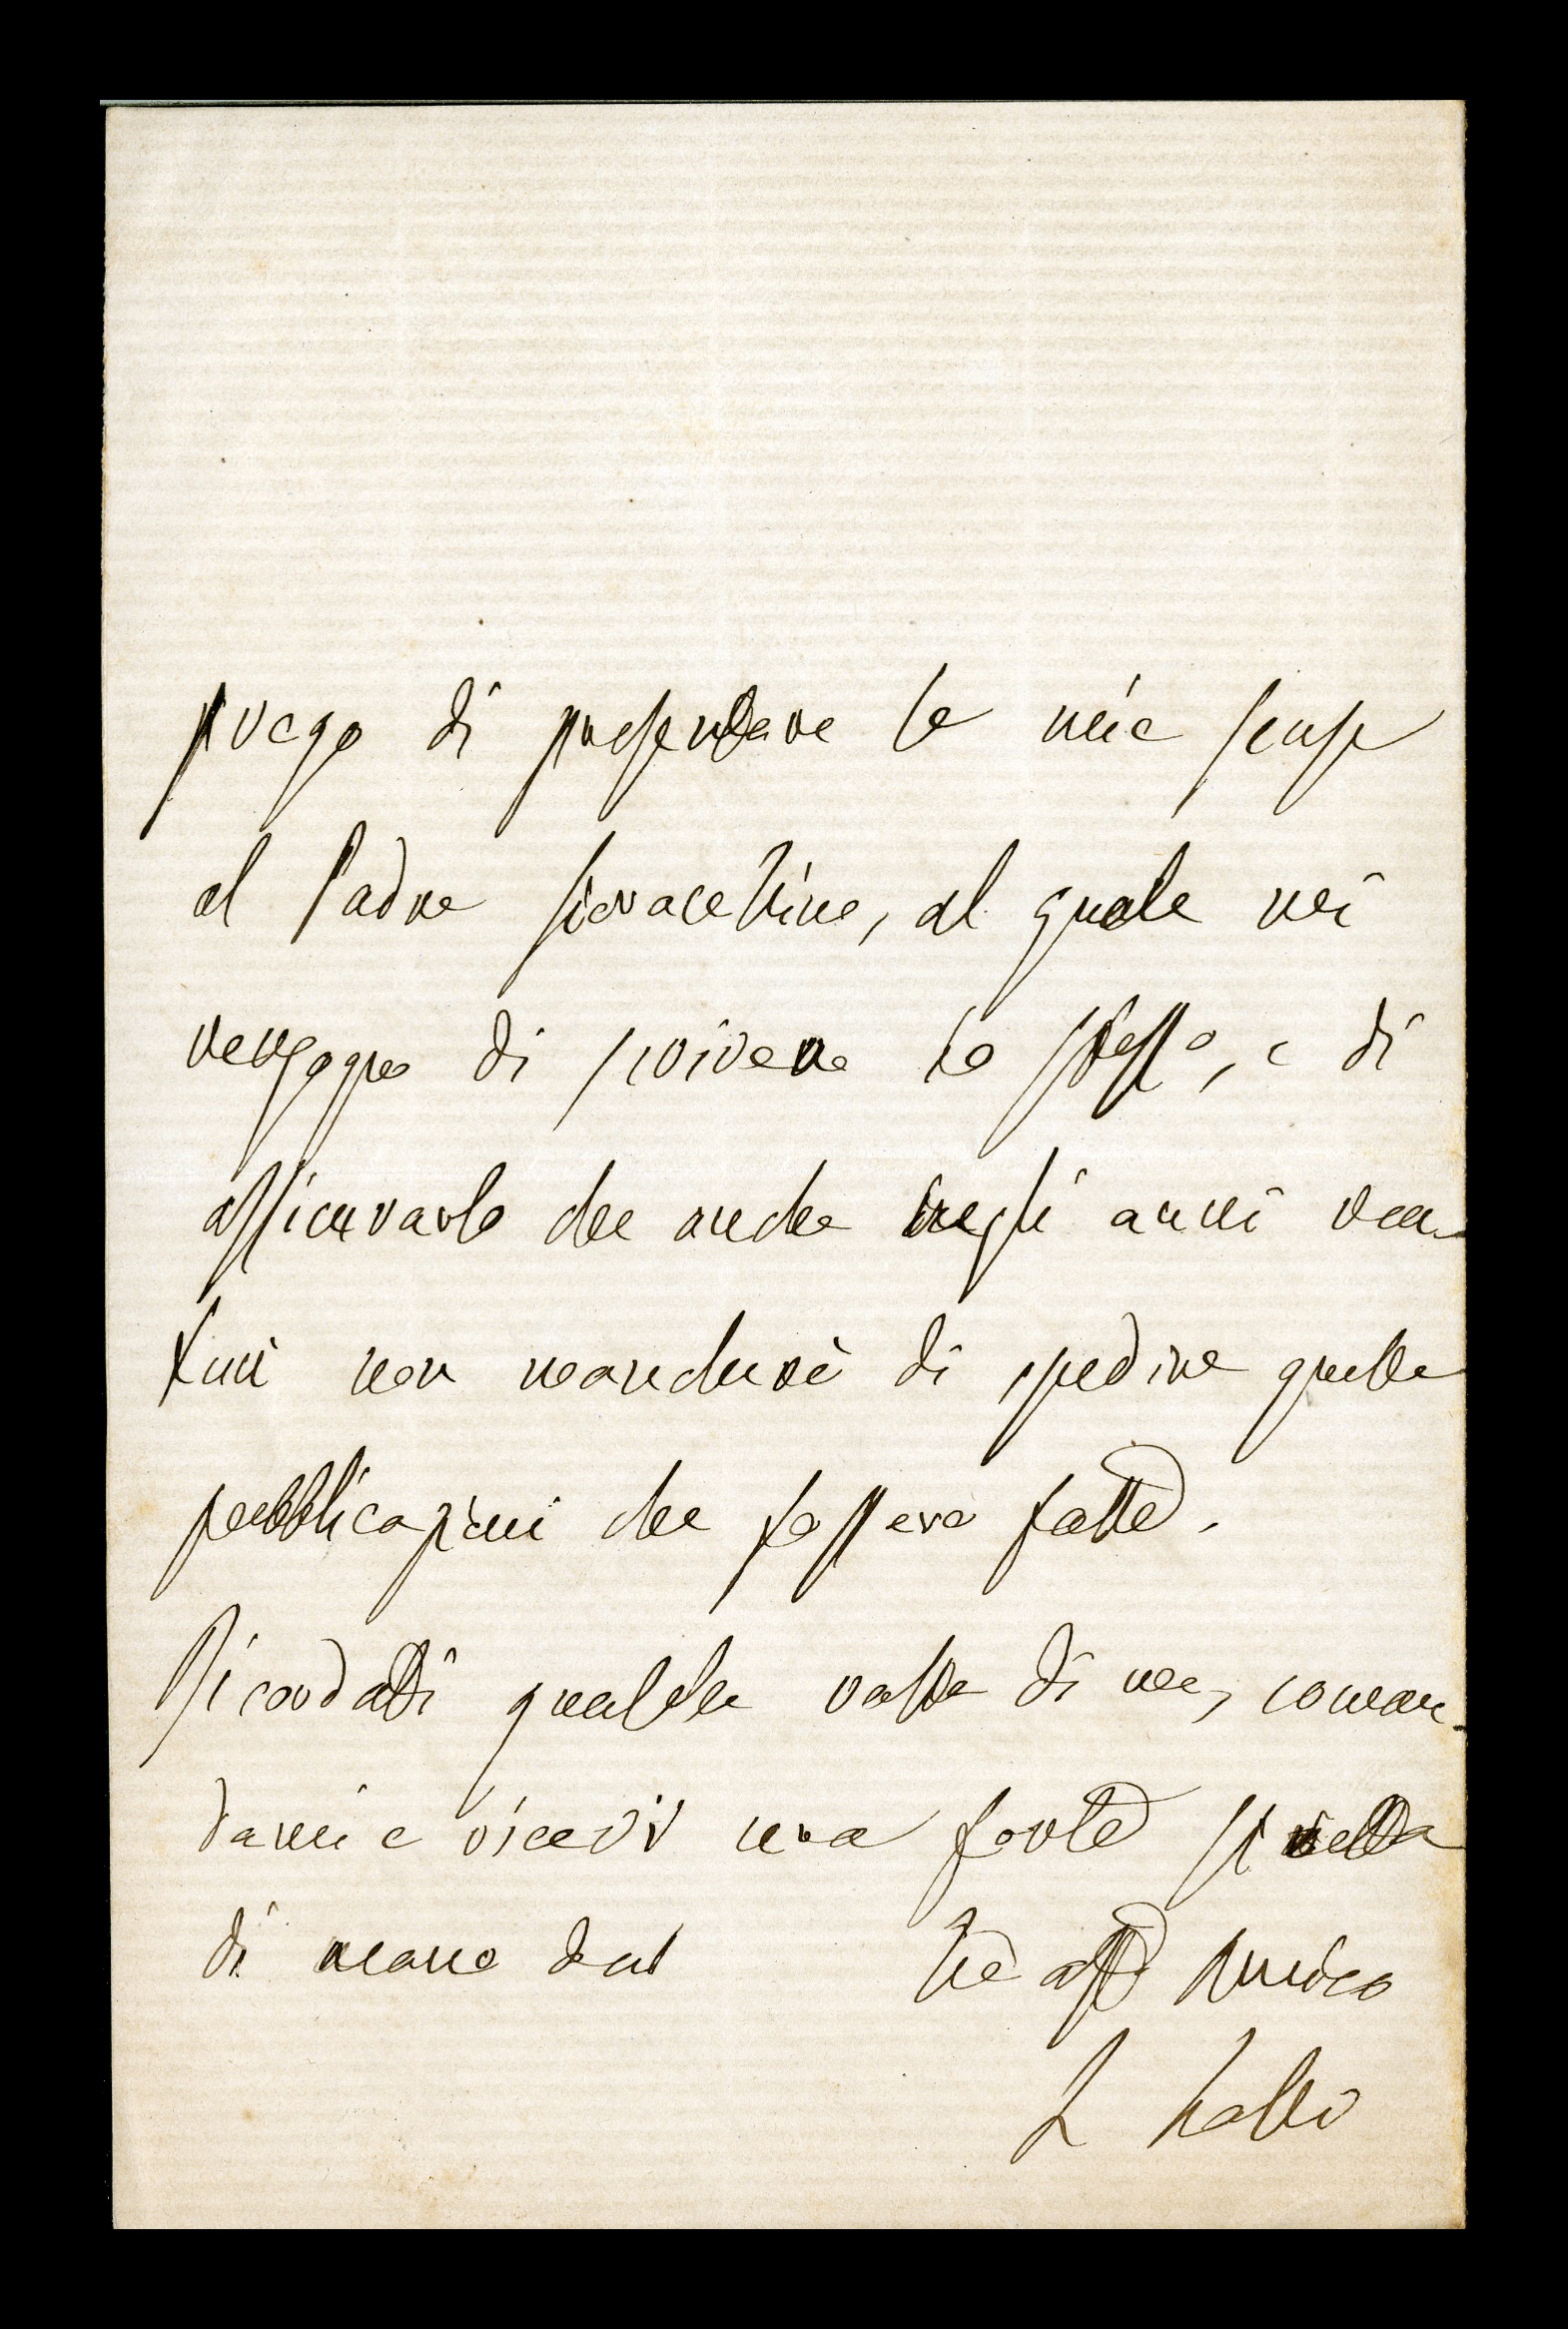 prego di presentare le mie scuse
al Padre al quale mi
vergogno di scrivere io stesso, e di
assicurarlo che anche negli anni ven-
turi non mancherò di spedire quelle
pubblicazioni che fossero fatte.
Ricordati qualche volta di me, coman-
dami e ricevi una forte stretta
di mano dal tuo aff Amico
L